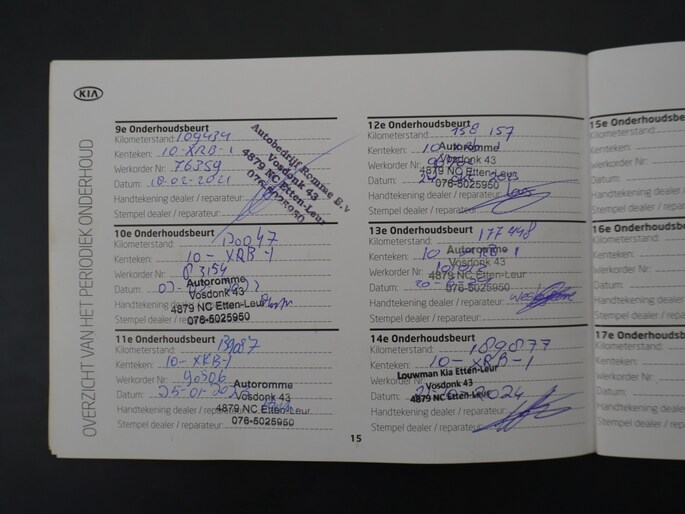 KIA
OVERZICHT VAN HET PERIODIEK ONDERHOUD
9e Onderhoudsbeurt
Kilometerstand: 109434
Kenteken: 10-XRB-1
Werkorder Nr: 76359
Datum: 18-02-2021
Handtekening dealer / reparateur:
Stempel dealer / reparateur:
Autobedrijf Romme B.V
Vosdonk 43
4879 NC Etten-Leur
076-5025950
10e Onderhoudsbeurt
Kilometerstand:
Kenteken: 10-XRB-1
Werkorder Nr: 83154
Datum:
Handtekening dealer
Stempel dealer / reparateur:
Autoromme
Vosdonk 43
4879 NC Etten-Leur
076-5025950
11e Onderhoudsbeurt
Kilometerstand:
Kenteken: 10-XRB-1
Werkorder Nr: 90506
Datum: 25-01-
Handtekening dealer /
Stempel dealer / reparateur:
Autoromme
Vosdonk 43
4879 NC Etten-Leur
076-5025950
12e Onderhoudsbeurt
Kilometerstand: 158 157
Kenteken: 10
Werkorder Nr:
Datum:
Handtekening dealer / reparateur:
Stempel dealer / reparateur:
Autoromme
Vosdonk 43
4879 NC Etten-Leur
076-5025950
13e Onderhoudsbeurt
Kilometerstand: 177448
Kenteken: 10
Werkorder Nr:
Datum:
Handtekening dealer / reparateur:
Stempel dealer / reparateur:
Autoromme
Vosdonk 43
4879 NC Etten-Leur
076-5025950
14e Onderhoudsbeurt
Kilometerstand: 189877
Kenteken: 10-XRB-1
Datum: 2024
Handtekening dealer / reparateur:
Stempel dealer / reparateur:
Louwman Kia Etten-Leur
Vosdonk 43
4879 NC Etten-Leur
15
15e Onderhoudsbeu
Kilometerstand:
Kenteken:
Werkorder Nr:
Datum:
Handtekening dea
Stempel dealer / r
16e Onderhouds
Kilometerstand:
Kenteken:
Werkorder Nr:
Datum:
Handtekening de
Stempel dealer /
17e Onderhouds
Kilometerstand:
Kenteken:
Werkorder Nr:
Datum:
Handtekening d
Stempel dealer